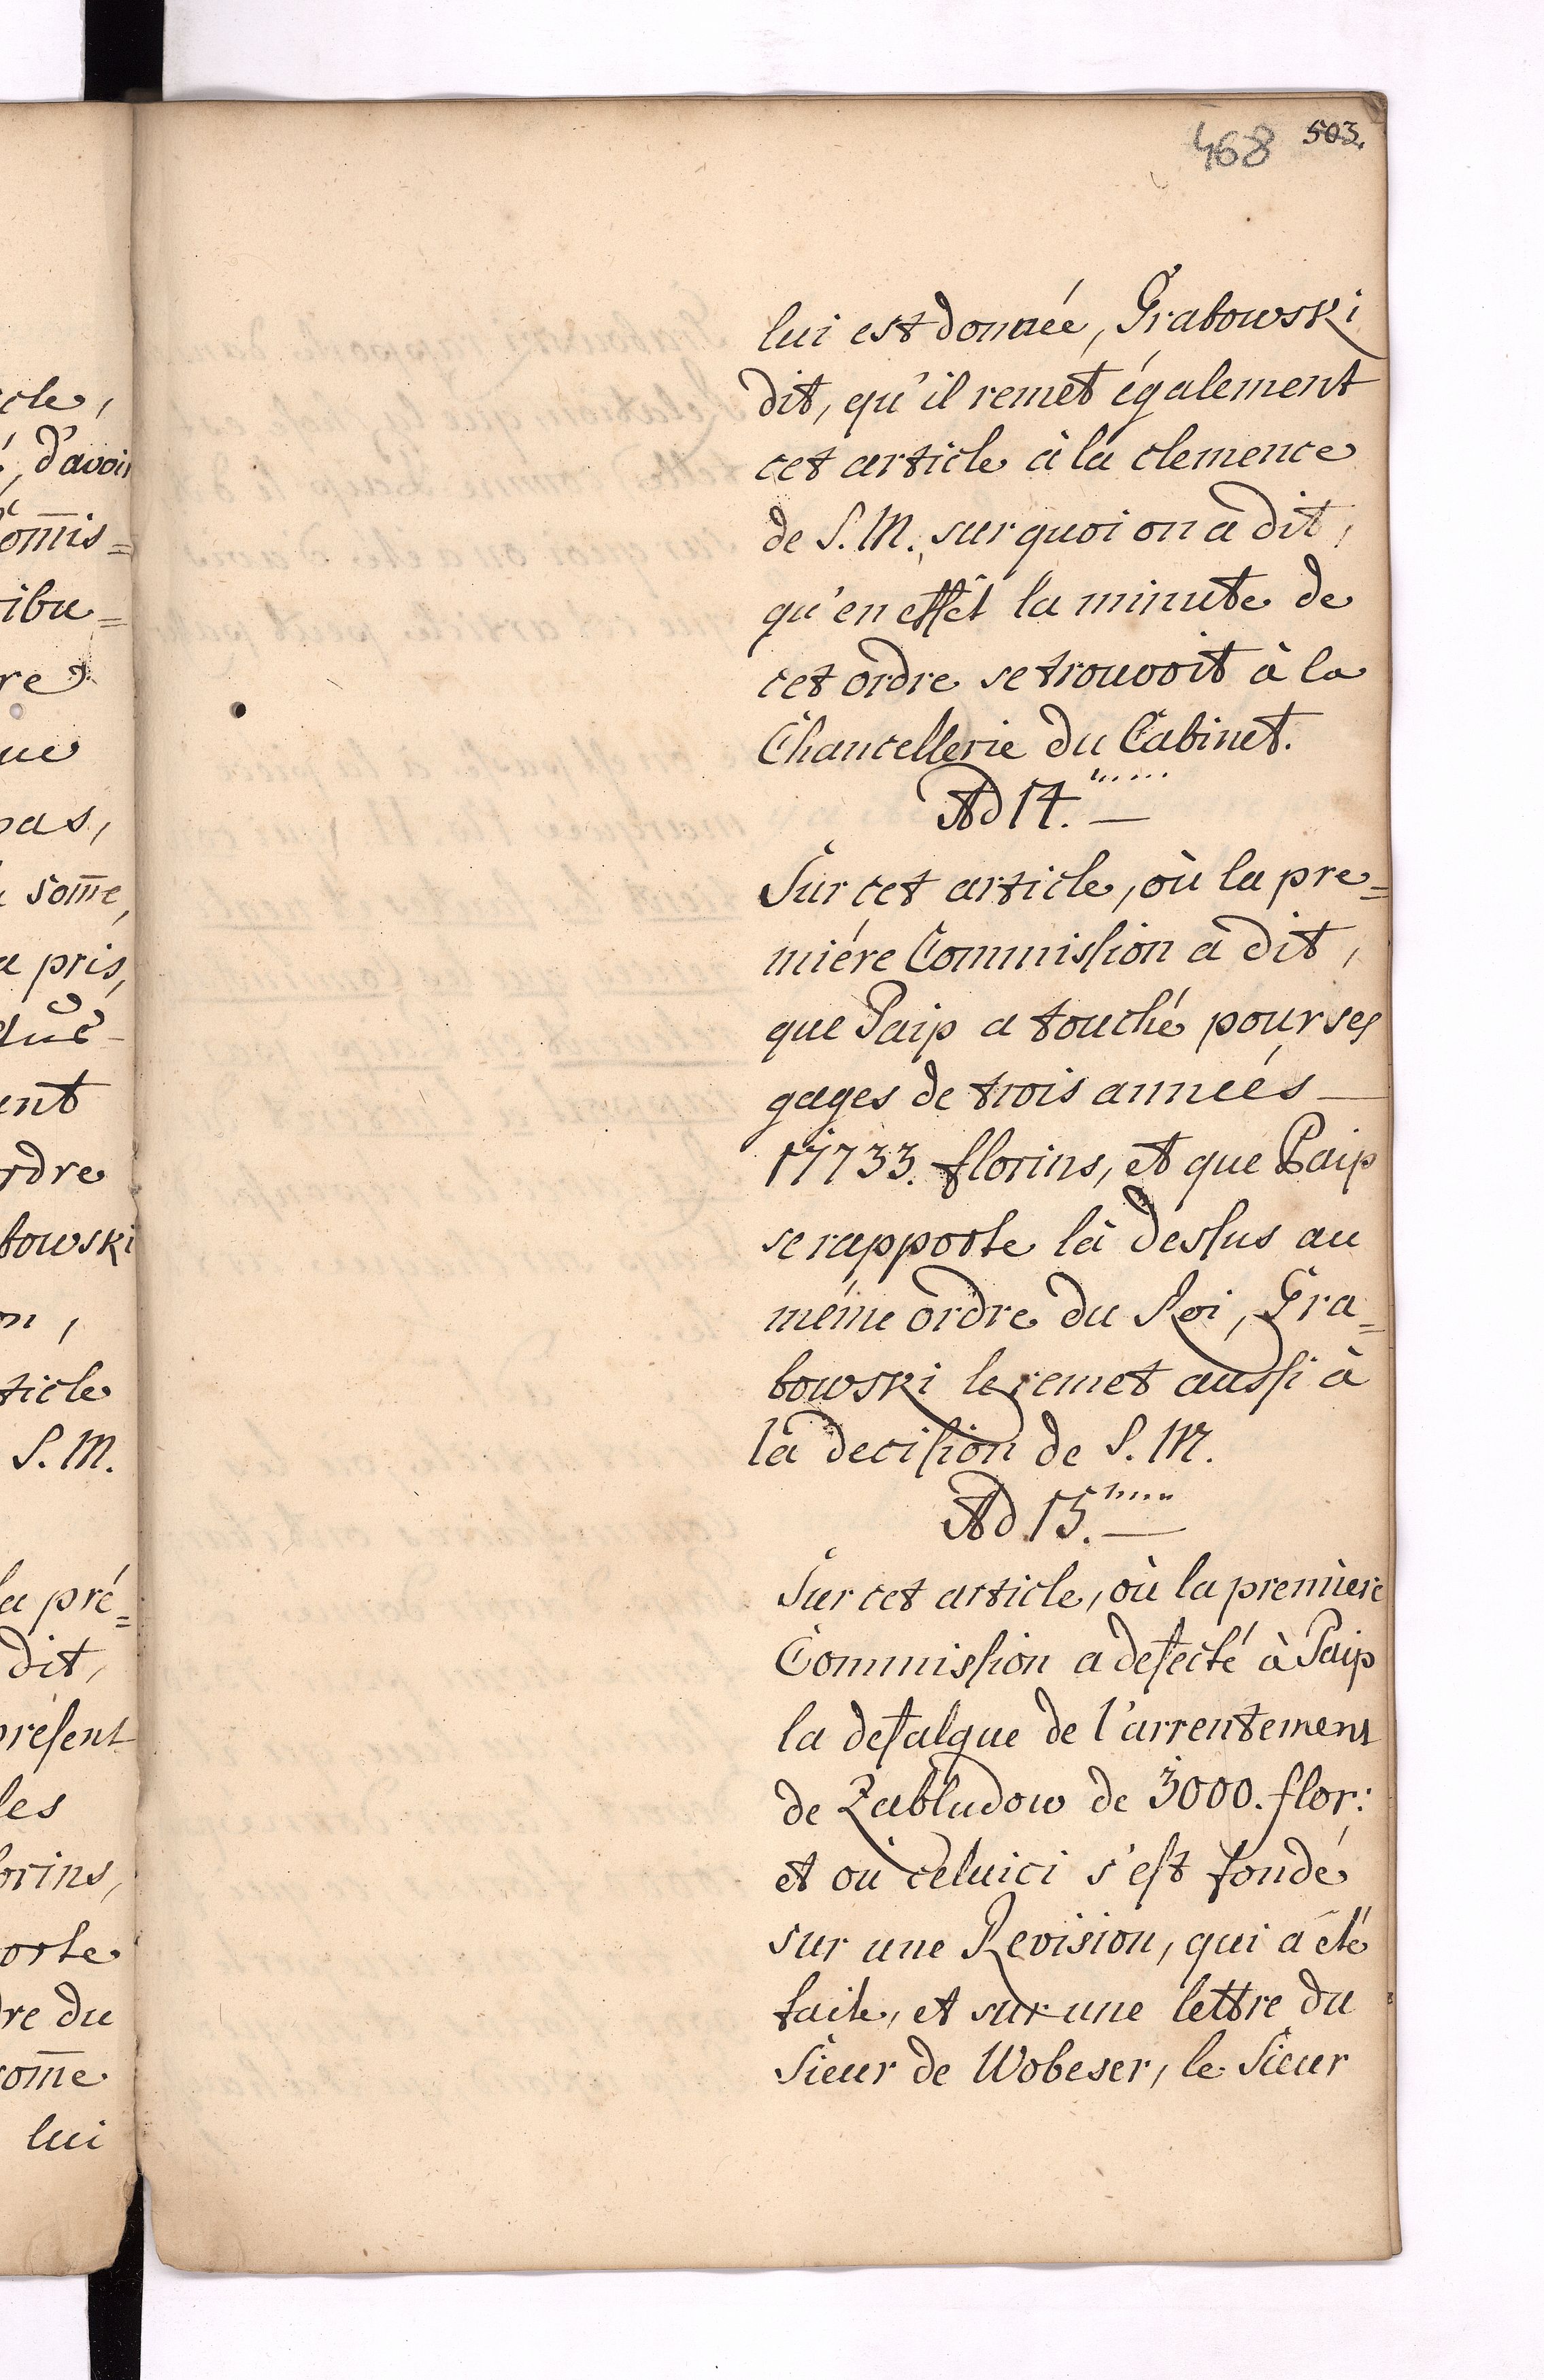 468 503.
lui est donneé, Grabowski
dit, qu'il remet également
cet article à la clemence
de S. M., sur quoi on a dit,
qu'en effêt la minute de
cet ordre se trouvoit à la
Chancellerie du Cabinet.
Ad 14.
Sur cet article, où la pre=
miére Commission a dit,
que Paip a touché pour ses
gages de trois anneés —
17733. florins, et que Paip
se rapporte là dessus au
méme ordre du Roi, Gra=
bowski le remet aussi à
la decision de S. M.
Ad 15.
Sur cet article, où la premiere
Commission a defecté à Paip
la defalque de l'arrentement
de Zabludow de 3000. flor:
et où celuici s'est fondé
sur une Revision, qui a été
faite, et sur une lettre du
Sieur de Wobeser, le Sieur
cle,
d'avoir
om̄is=
ibu=
re
ue
pas,
som̄e,
a pris,
ent
rdre
bowski
n,
ticle
S. M.
la pré=
dit,
présent
les
orins,
orte
dre du
som̄e
lui